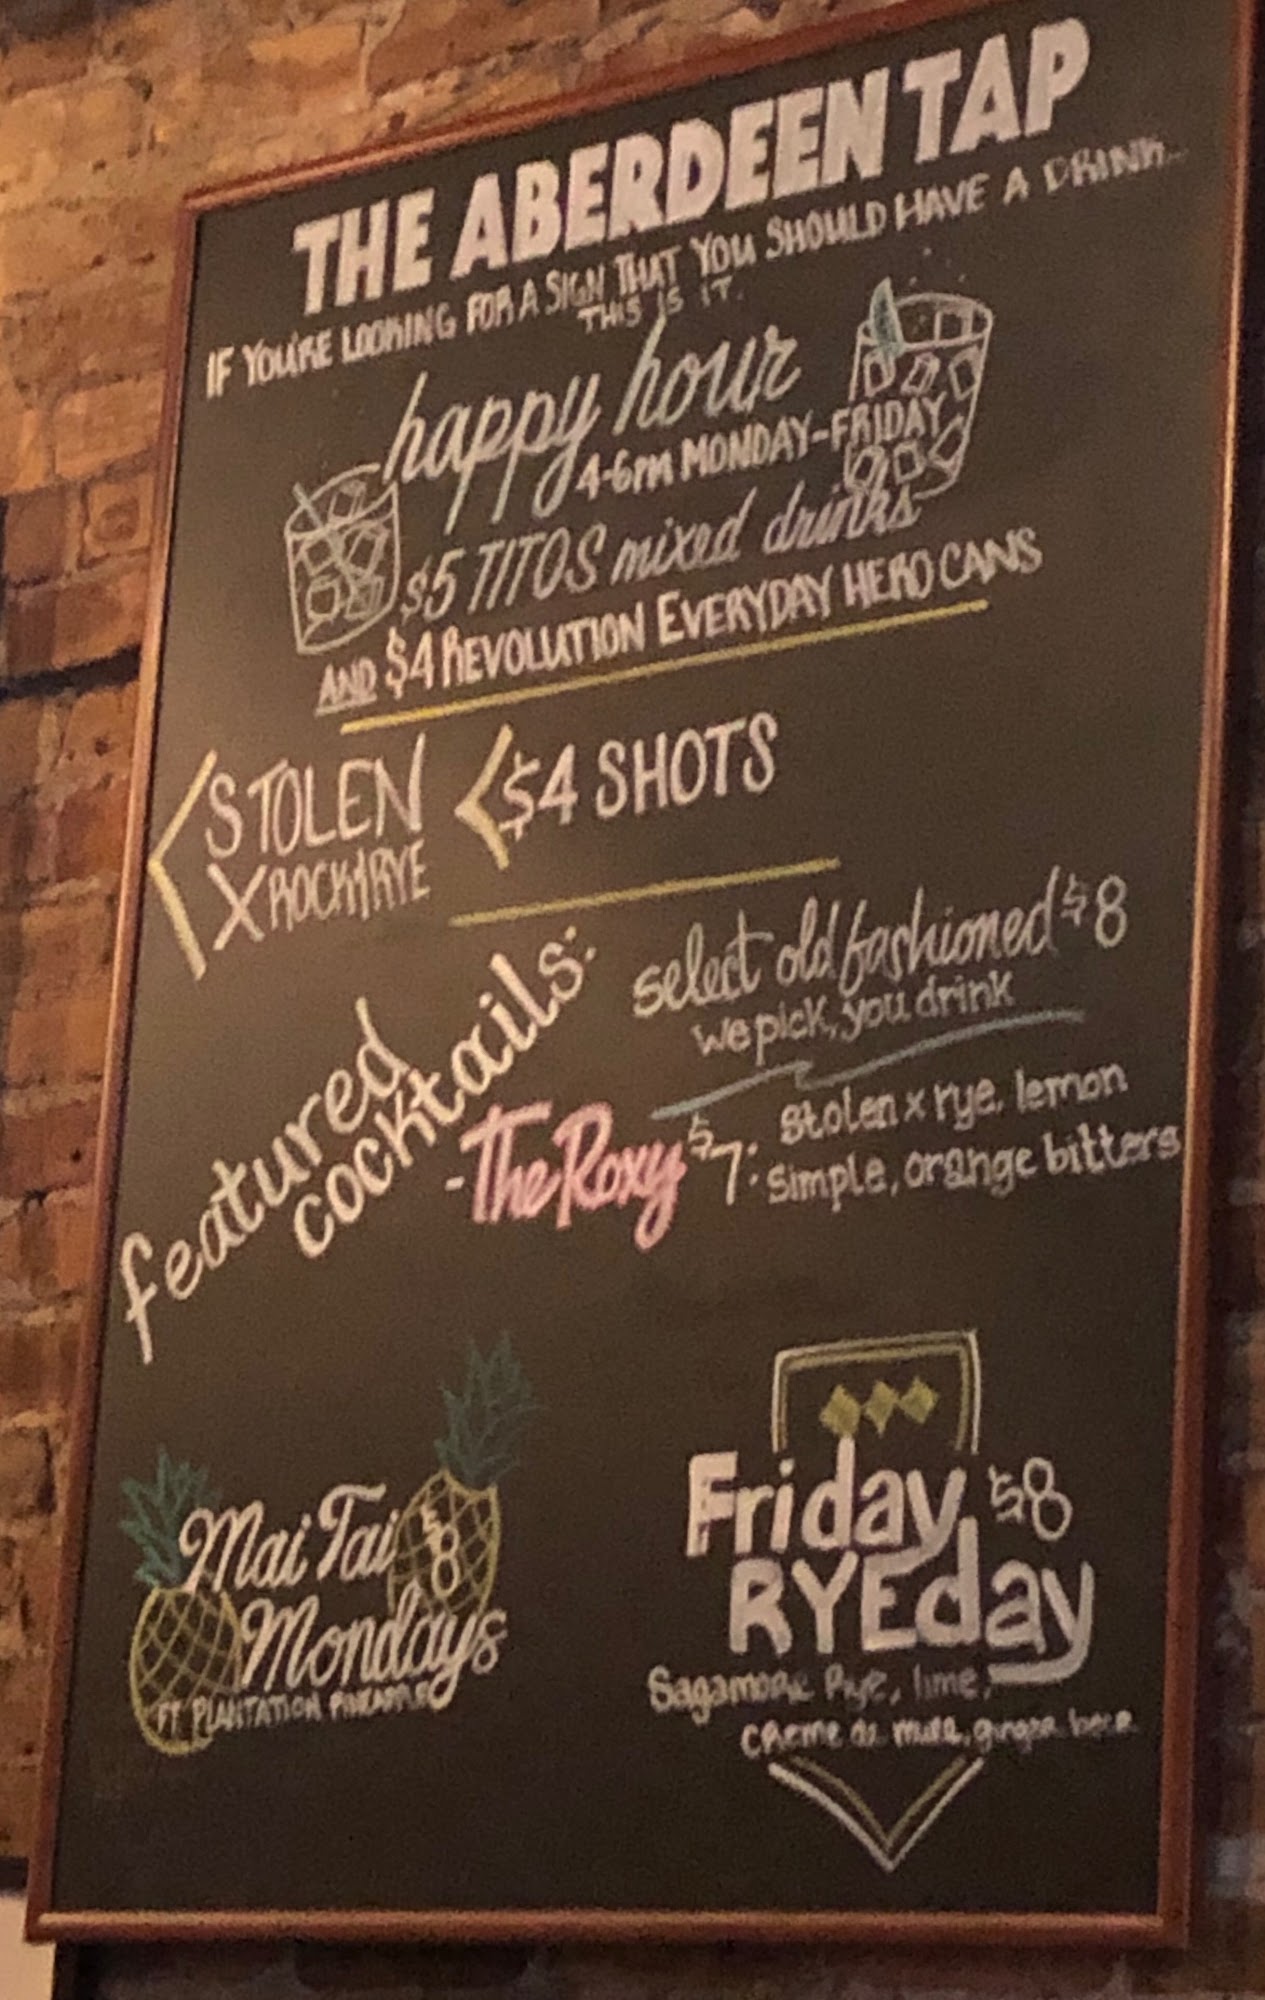 THE ABERDEEN TAP
IF YOU'RE LOOKING FOR A SIGN THAT YOU SHOULD HAVE A DRINK...
THIS IS IT.
happy hour
4-6PM MONDAY-FRIDAY
$5 TITOS mixed drinks
AND $4 REVOLUTION EVERYDAY HERO CANS
STOLEN
X ROCK & RYE
$4 SHOTS
featured
cocktails:
select old fashioned $8
we pick, you drink
- The Roxy $7:
stolen x rye, lemon
simple, orange bitters
Mai Tai $8
Mondays
FT. PLANTATION PINEAPPLE
Friday $8
RYEday
Sagamore Rye, lime,
creme de mure, ginger beer